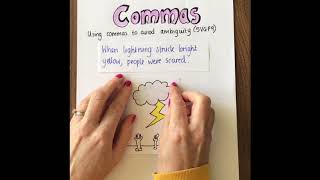 Commas
Using commas to avoid ambiguity (5VGP4)
When lightning struck bright
yellow, people were scared.